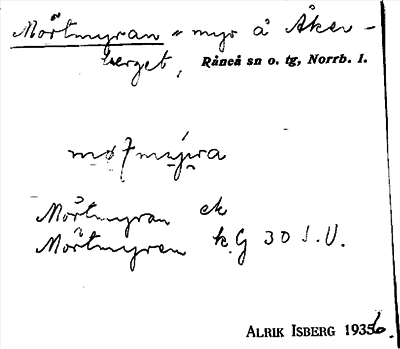 Mörtmyran = myr å Åker-
berget, Råneå sn o. tg, Norrb. l.
Mörtmyran ek
Mörtmyran k.G 30 S.V.
ALRIK ISBERG 1936.